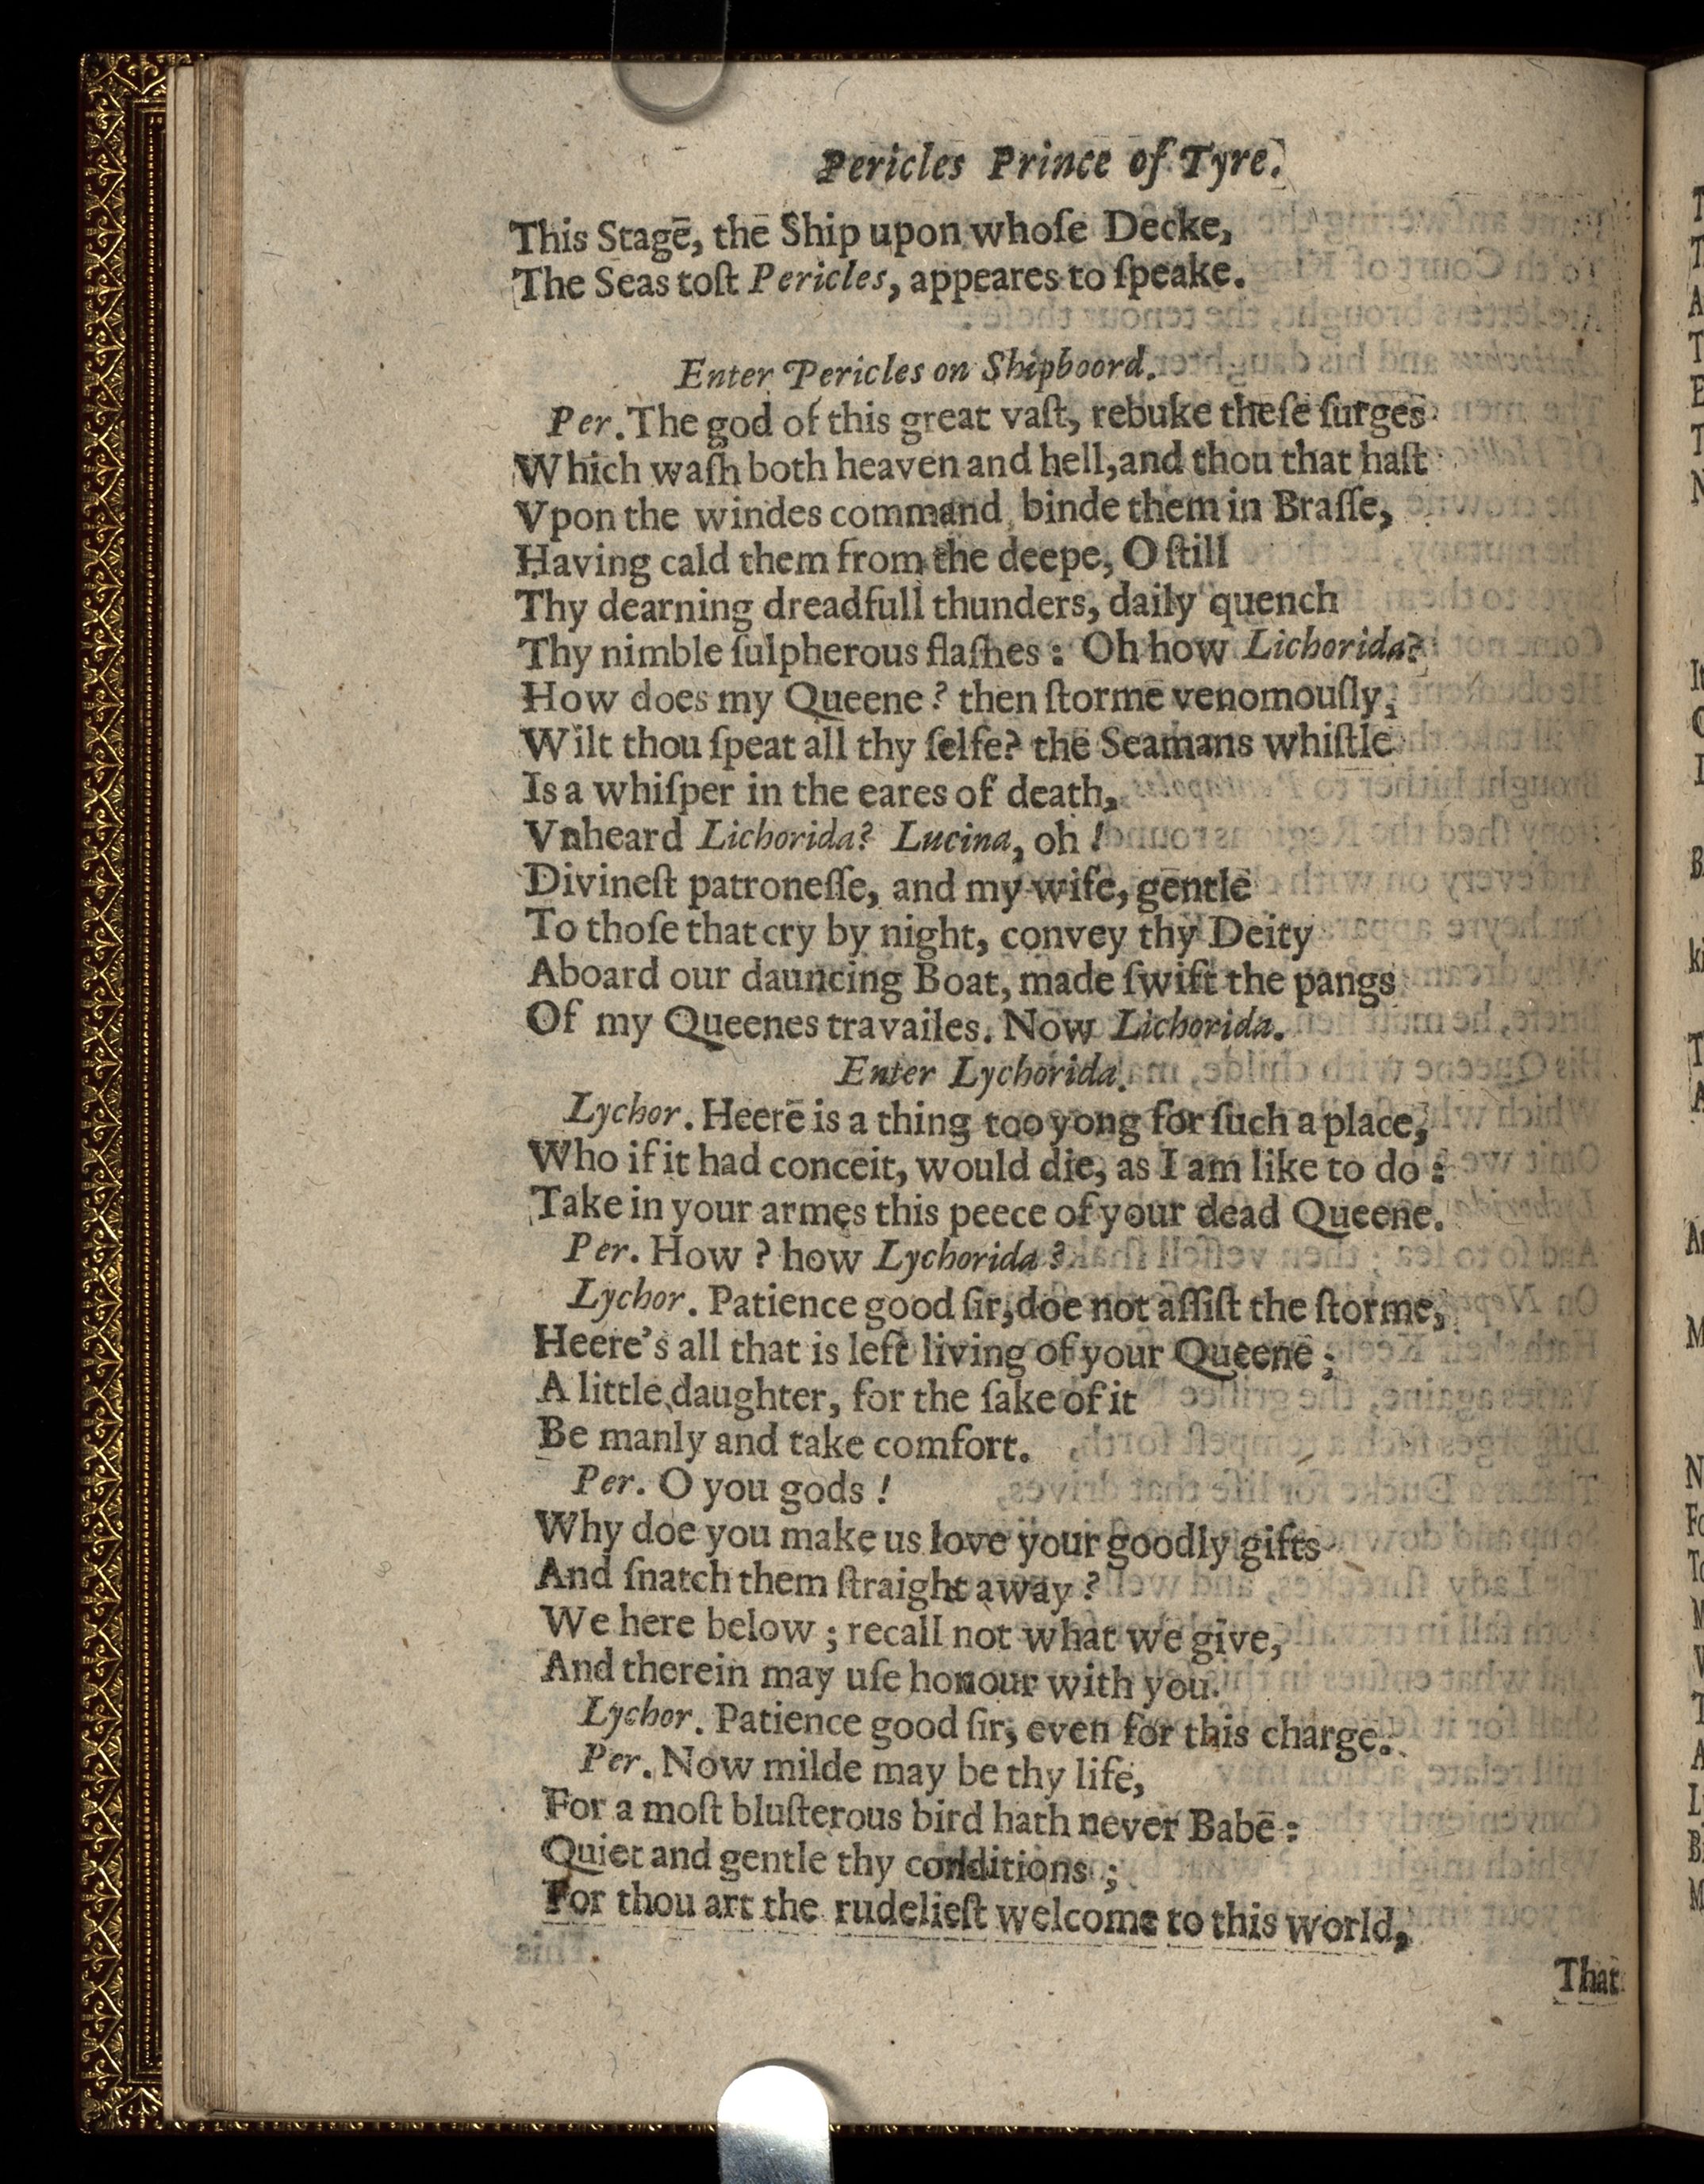 Pericles Prince of Tyre.
This Stage, the Ship upon whoſe Decke,
The Seas toſt Pericles, appeares to ſpeake.
Enter Pericles on Shipboord.
Per. The god of this great vaſt, rebuke theſe ſurges
Which waſh both heaven and hell, and thou that haſt
Vpon the windes command, binde them in Braſſe,
Having cald them from the deepe, O ſtill
Thy dearning dreadfull thunders, daily quench
Thy nimble ſulpherous flaſhes : Oh how Lichorida?
How does my Queene ? then ſtorme venomouſly,
Wilt thou ſpeat all thy ſelfe? the Seamans whiſtle
Is a whiſper in the eares of death,
Vnheard Lichorida? Lucina, oh !
Divineſt patroneſſe, and my wife, gentle
To thoſe that cry by night, convey thy Deity
Aboard our dauncing Boat, made ſwift the pangs
Of my Queenes travailes. Now Lichorida.
Enter Lychorida.
Lychor. Heere is a thing too yong for ſuch a place,
Who if it had conceit, would die, as I am like to do :
Take in your armes this peece of your dead Queene.
Per. How ? how Lychorida ?
Lychor. Patience good ſir, doe not aſſiſt the ſtorme,
Heere's all that is left living of your Queene ;
A little daughter, for the ſake of it
Be manly and take comfort.
Per. O you gods !
Why doe you make us love your goodly gifts
And ſnatch them ſtraight away ?
We here below ; recall not what we give,
And therein may uſe honour with you.
Lychor. Patience good ſir, even for this charge.
Per. Now milde may be thy life,
For a moſt bluſterous bird hath never Babe :
Quiet and gentle thy conditions ;
For thou art the rudelieſt welcome to this world,
That